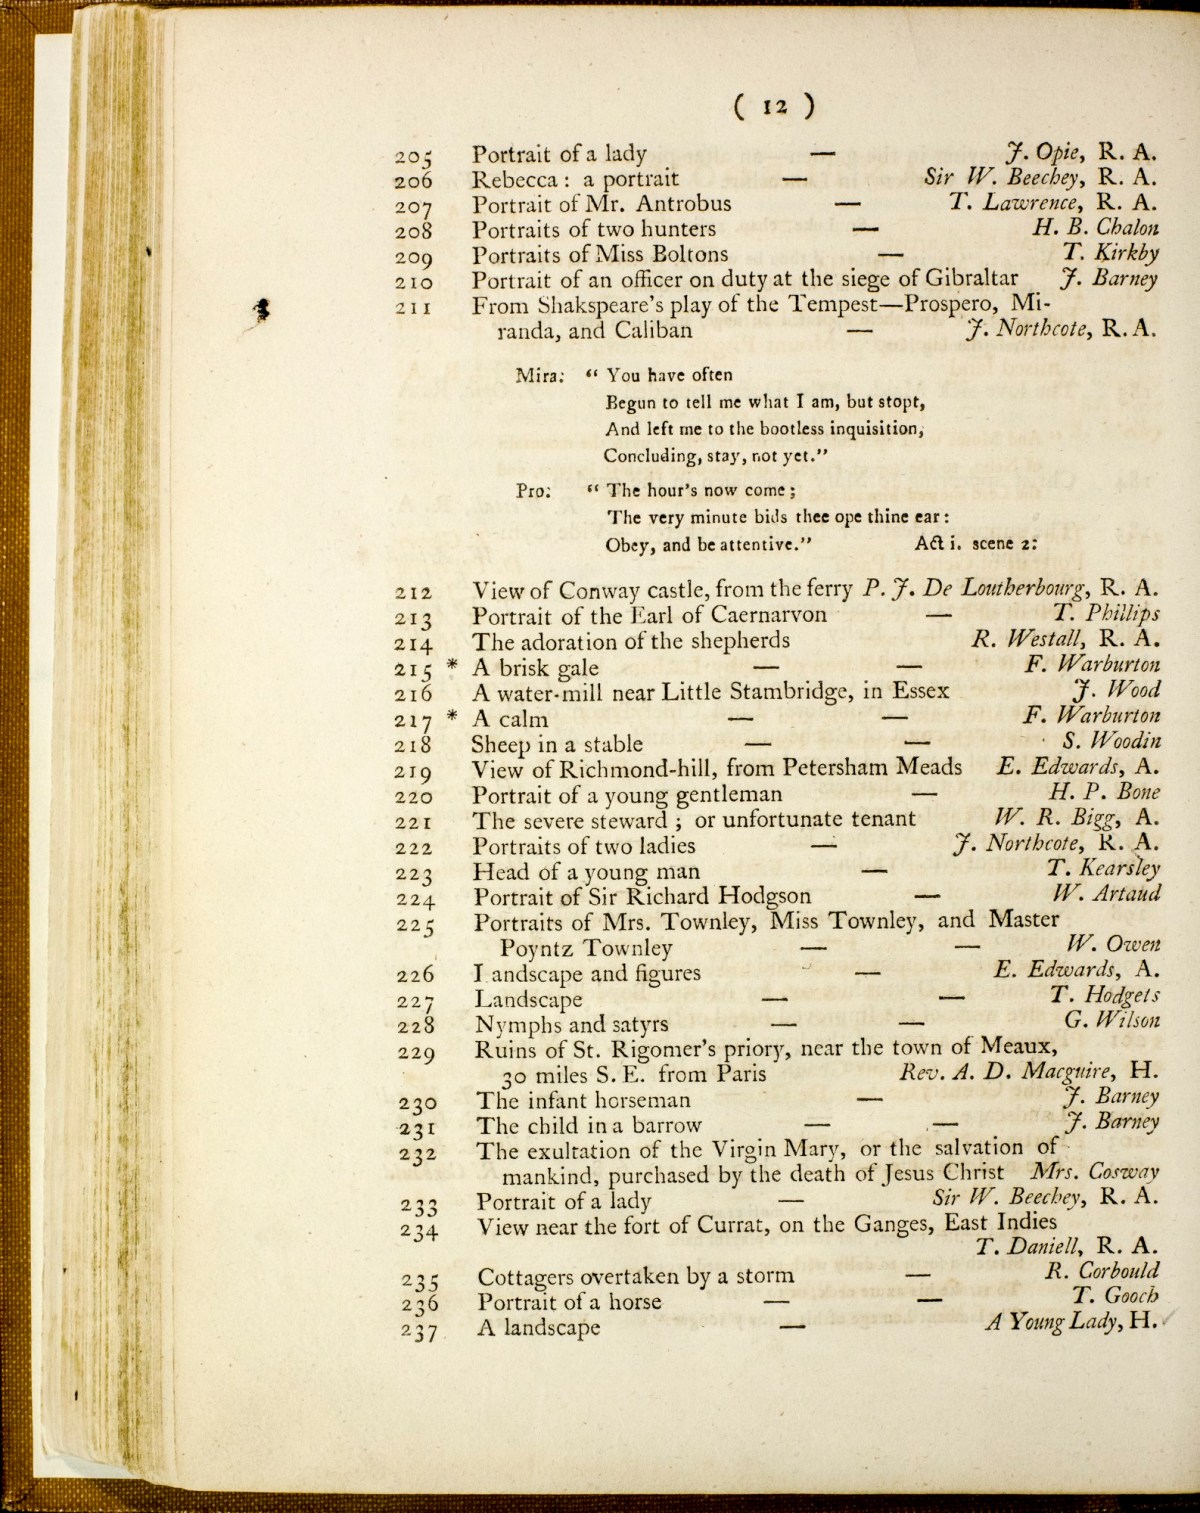 ( 12 )
205 Portrait of a lady — J. Opie, R. A.
206 Rebecca : a portrait — Sir W. Beechey, R. A.
207 Portrait of Mr. Antrobus — T. Lawrence, R. A.
208 Portraits of two hunters — H. B. Chalon
209 Portraits of Miss Boltons — T. Kirkby
210 Portrait of an officer on duty at the siege of Gibraltar J. Barney
211 From Shakspeare's play of the Tempest—Prospero, Mi-
randa, and Caliban — J. Northcote, R. A.
Mira: “ You have often
Begun to tell me what I am, but stopt,
And left me to the bootless inquisition,
Concluding, stay, not yet.”
Pro: “ The hour's now come ;
The very minute bids thee ope thine ear :
Obey, and be attentive.” Act i. scene 2:
212 View of Conway castle, from the ferry P. J. De Loutherbourg, R. A.
213 Portrait of the Earl of Caernarvon — T. Phillips
214 The adoration of the shepherds R. Westall, R. A.
215 * A brisk gale — — F. Warburton
216 A water-mill near Little Stambridge, in Essex J. Wood
217 * A calm — — F. Warburton
218 Sheep in a stable — — S. Woodin
219 View of Richmond-hill, from Petersham Meads E. Edwards, A.
220 Portrait of a young gentleman — H. P. Bone
221 The severe steward ; or unfortunate tenant W. R. Bigg, A.
222 Portraits of two ladies — J. Northcote, R. A.
223 Head of a young man — T. Kearsley
224 Portrait of Sir Richard Hodgson — W. Artaud
225 Portraits of Mrs. Townley, Miss Townley, and Master
Poyntz Townley — — W. Owen
226 Landscape and figures — E. Edwards, A.
227 Landscape — — T. Hodgets
228 Nymphs and satyrs — — G. Wilson
229 Ruins of St. Rigomer's priory, near the town of Meaux,
30 miles S. E. from Paris Rev. A. D. Macguire, H.
230 The infant horseman — J. Barney
231 The child in a barrow — — J. Barney
232 The exultation of the Virgin Mary, or the salvation of
mankind, purchased by the death of Jesus Christ Mrs. Cosway
233 Portrait of a lady — Sir W. Beechey, R. A.
234 View near the fort of Currat, on the Ganges, East Indies
T. Daniell, R. A.
235 Cottagers overtaken by a storm — R. Corbould
236 Portrait of a horse — — T. Gooch
237 A landscape — A Young Lady, H.